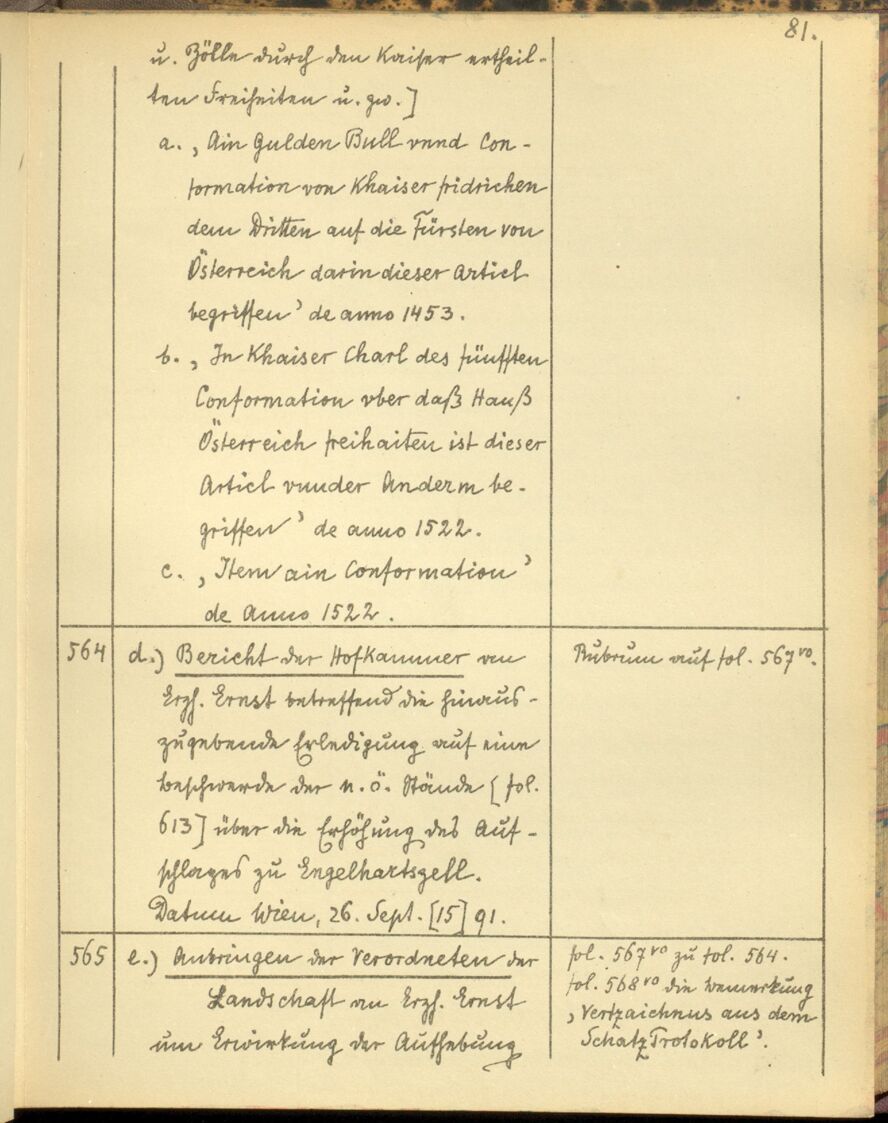 81.
u. Zölle durch den Kaiser ertheil-
ten Freiheiten u. zw.]
a. „Ain Gulden Bull vnnd Con-
formation von Khaiser fridrichen
dem Dritten auf die Fürsten von
Österreich darin dieser Articl
begriffen" de anno 1453.
b. „In Khaiser Charl des fünfften
Conformation vber daß Hauß
Österreich freihaiten ist dieser
Articl vnnder Anderm be-
griffen" de anno 1522.
c. „Item ain Conformation"
de Anno 1522.
564 d.) Bericht der Hofkammer an
Erzh. Ernst betreffend die hinaus-
zugebende Erledigung auf eine
Beschwerde der n. ö. Stände [fol.
613] über die Erhöhung des Auf-
schlages zu Engelhartszell.
Datum Wien, 26. Sept. [15]91.
Rubrum auf fol. 567 vo.
565 e.) Anbringen der Verordneten der
Landschaft an Erzh. Ernst
um Erwirkung der Aufhebung
fol. 567 vo zu fol. 564.
fol. 568 vo die Bemerkung
„Vertzaichnus aus dem
Schatz Protokoll".